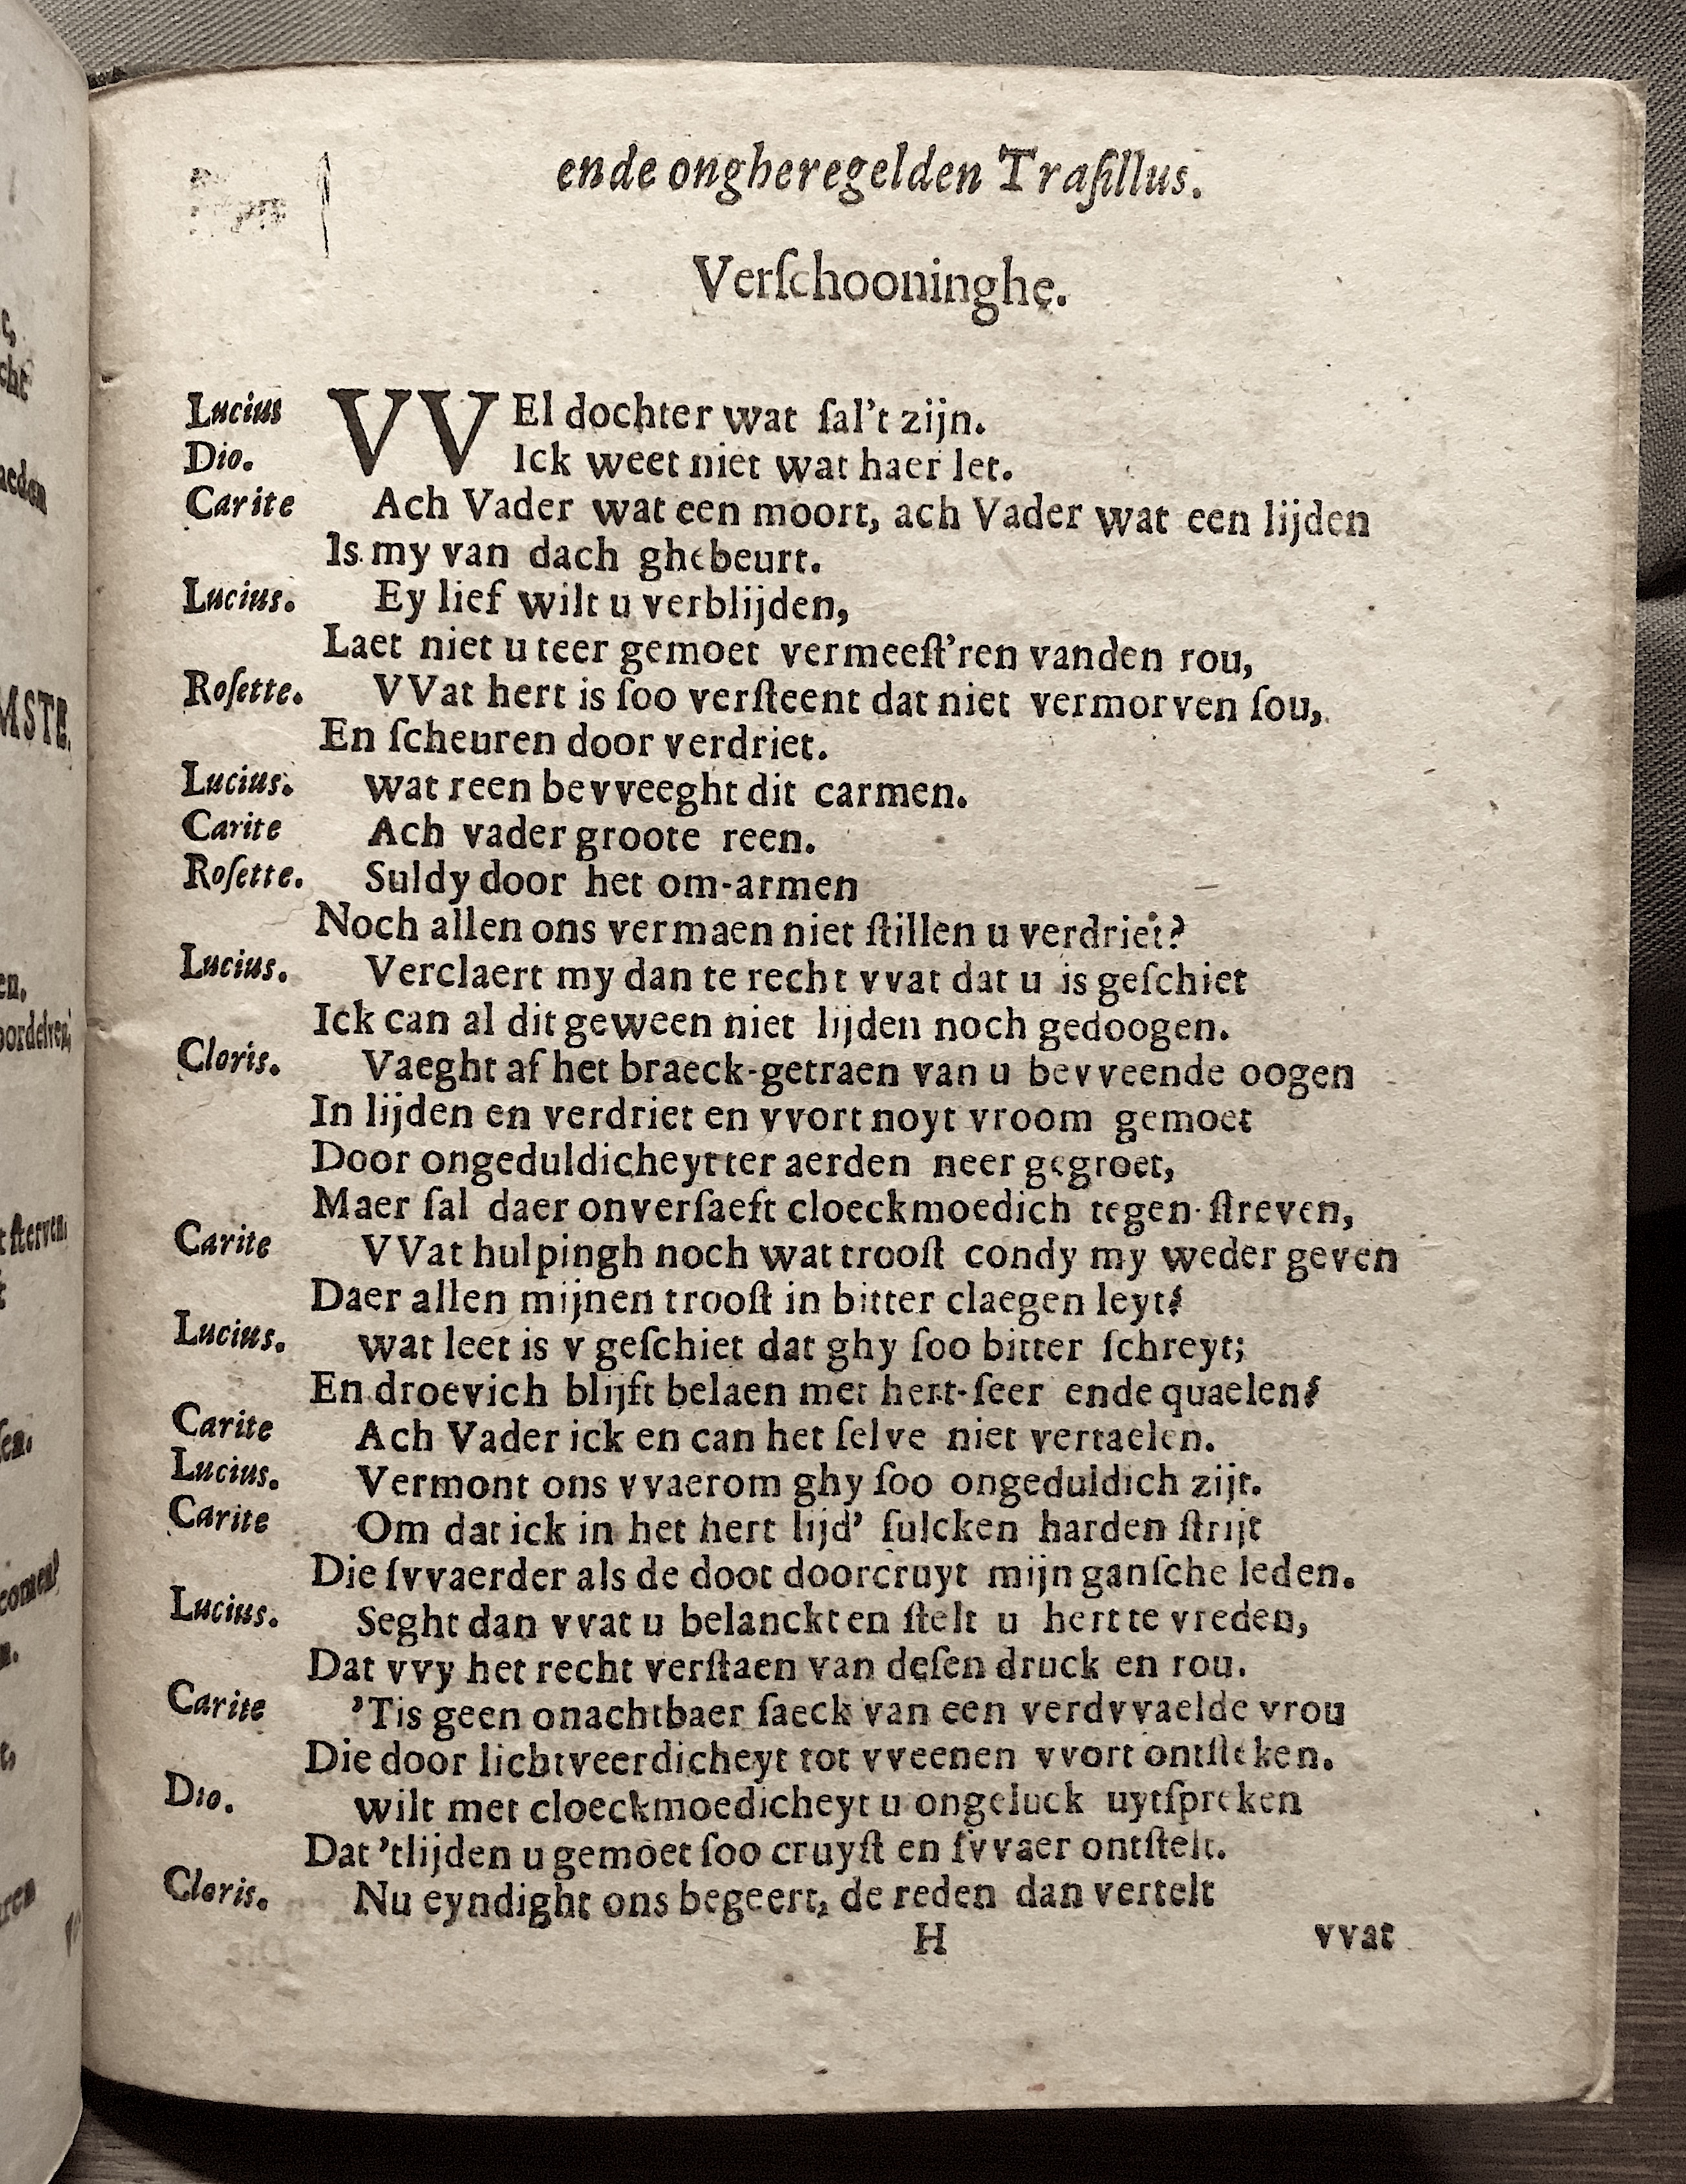 ende ongheregelden Traſillus.
Verſchooninghe.
Lucius VVEl dochter wat ſal't zijn.
Dio. Ick weet niet wat haer let.
Carite Ach Vader wat een moort, ach Vader wat een lijden
Is my van dach ghebeurt.
Lucius. Ey lief wilt u verblijden,
Laet niet u teer gemoet vermeeſt'ren vanden rou,
Roſette. VVat hert is ſoo verſteent dat niet vermorven ſou,
En ſcheuren door verdriet.
Lucius. wat reen bevveeght dit carmen.
Carite Ach vader groote reen.
Roſette. Suldy door het om-armen
Noch allen ons vermaen niet ſtillen u verdriet?
Lucius. Verclaert my dan te recht vvat dat u is geſchiet
Ick can al dit geween niet lijden noch gedoogen.
Cloris. Vaeght af het braeck-getraen van u bevveende oogen
In lijden en verdriet en vvort noyt vroom gemoet
Door ongeduldicheyt ter aerden neer gegroet,
Maer ſal daer onverſaeft cloeckmoedich tegen-ſtreven,
Carite VVat hulpingh noch wat trooſt condy my weder geven
Daer allen mijnen trooſt in bitter claegen leyt?
Lucius. wat leet is v geſchiet dat ghy ſoo bitter ſchreyt;
En droevich blijft belaen met hert-ſeer ende quaelen?
Carite Ach Vader ick en can het ſelve niet vertaelen.
Lucius. Vermont ons vvaerom ghy ſoo ongeduldich zijt.
Carite Om dat ick in het hert lijd' ſulcken harden ſtrijt
Die ſvvaerder als de doot doorcruyt mijn ganſche leden.
Lucius. Seght dan vvat u belanckt en ſtelt u hert te vreden,
Dat vvy het recht verſtaen van deſen druck en rou.
Carite 'Tis geen onachtbaer ſaeck van een verdvvaelde vrou
Die door lichtveerdicheyt tot vveenen vvort ontſteken.
Dio. wilt met cloeckmoedicheyt u ongeluck uytſpreken
Dat 'tlijden u gemoet ſoo cruyſt en ſvvaer ontſtelt.
Cloris. Nu eyndight ons begeert, de reden dan vertelt
H vvat